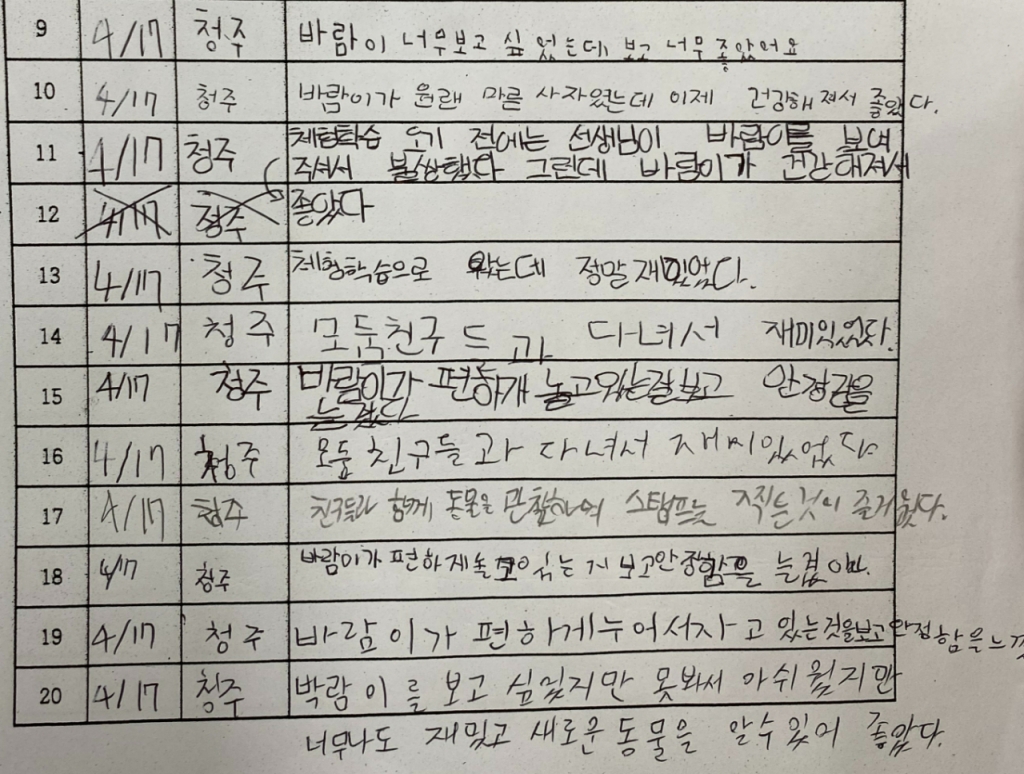 9 4/17 청주 바람이 너무보고 싶었는데 보고 너무 좋았어요
10 4/17 청주 바람이가 원래 마른 사자였는데 이제 건강해져서 좋았다.
11 4/17 청주 체험학습 오기 전에는 선생님이 바람이를 보여
주셔서 불쌍했다 그런데 바람이가 건강해져서
12 4/17 청주 좋았다
13 4/17 청주 체험학습으로 왔는데 정말재밌었다.
14 4/17 청주 모둠친구 드 과 다녀서 재미있었다.
15 4/17 청주 바람이가 편하개 놀고있는걸보고 안정감을
느꼈다
16 4/17 청주 모둠 친구들과 다녀서 재미있었다
17 4/17 청주 친구들과 함께 동물을 관찰하며 스탬프를 찍는것이 즐거웠다.
18 4/17 청주 바람이가 편하게 보고안정함을 느꼈
19 4/17 청주 바람이가 편하게누어서자고 있는것을보고 안정함을느
20 4/17 청주 박람이를 보고 싶었지만 못봐서 아쉬웠지만
너무나도 재밌고 새로운동물을 알수있어 좋았다.